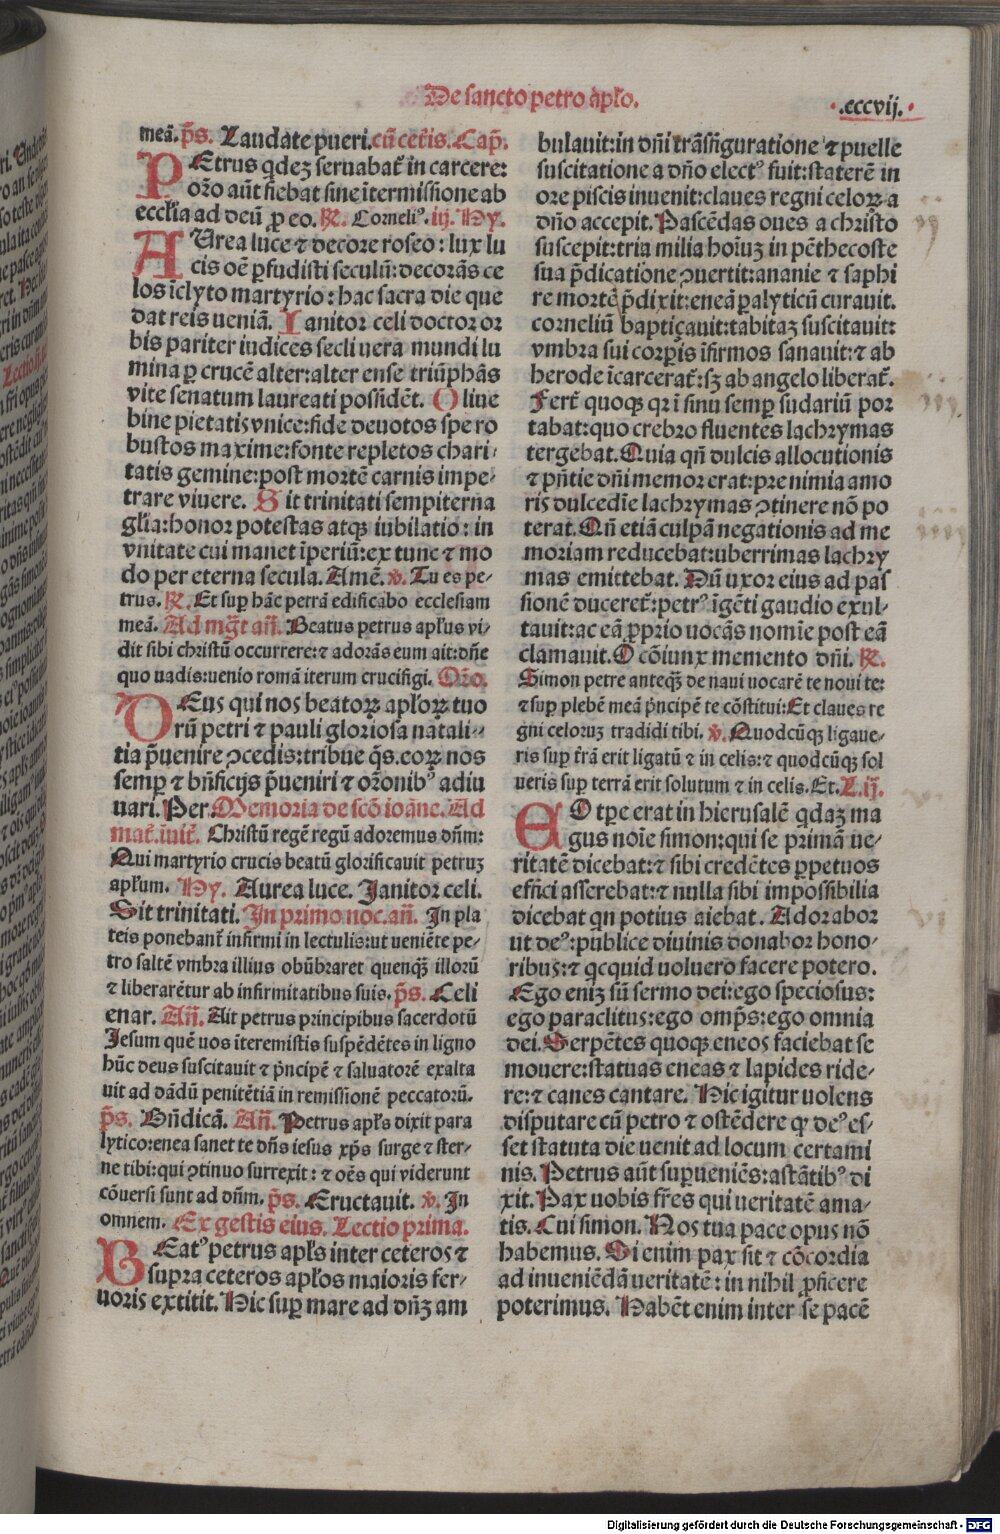 De sancto petro aplo.
.cccvij.
meã. p̃s. Laudate pueri. cũ ceteris. Cap̃.
PEtrus qdez seruabat̃ in carcere:
oro aũt fiebat sine ĩtermissione ab
eccl̃ia ad deũ ꝓ eo. ℟. Corneliꝰ. iij. Hy.
AUrea luce ⁊ decore roseo: lux lu
cis oẽ ꝑfudisti seculũ: decorãs ce
los ĩclyto martyrio: hac sacra die que
dat reis ueniã. Ianitor celi doctor or
bis pariter iudices secli uera mundi lu
mina ꝑ crucẽ alter: alter ense triũphãs
vite senatum laureati possidẽt. Oliue
bine pietatis vnice: fide deuotos spe ro
bustos maxime: fonte repletos chari-
tatis gemine: post mortẽ carnis impe-
trare viuere. Sit trinitati sempiterna
gl̃ia: honor potestas atqꝫ iubilatio: in
vnitate cui manet ĩperiũ: ex tunc ⁊ mo
do per eterna secula. Amẽ. ℣. Tu es pe-
trus. ℟. Et suꝑ hãc petrã edificabo ecclesiam
meã. Ad mg̃t añ. Beatus petrus apl̃us vi-
dit sibi christũ occurrere: ⁊ adorãs eum ait: dñe
quo uadis: uenio romã iterum crucifigi. Oro.
DEus qui nos beatoꝝ apl̃oꝝ tuo
rũ petri ⁊ pauli gloriosa natali-
tia p̃uenire ꝯcedis: tribue q̃s. eoꝝ nos
semꝑ ⁊ bñficijs p̃ueniri ⁊ oronibꝰ adiu
uari. Per. Memoria de scõ ioãne. Ad
mat̃. ĩuit̃. Christũ regẽ regũ adoremus dñm:
Qui martyrio crucis beatũ glorificauit petruꝫ
apl̃um. Hy. Aurea luce. Janitor celi.
Sit trinitati. In primo noc. añ. In pla
teis ponebant̃ infirmi in lectulis: ut ueniẽte pe-
tro saltẽ vmbra illius obũbraret quenqꝫ illorũ
⁊ liberarẽtur ab infirmitatibus suis. p̃s. Celi
enar. Añ. Ait petrus principibus sacerdotũ
Jesum quẽ uos ĩteremistis suspẽdẽtes in ligno
hũc deus suscitauit ⁊ p̃ncipẽ ⁊ saluatorẽ exalta
uit ad dãdũ penitẽtiã in remissionẽ peccatorũ.
p̃s. Bñdicã. Añ. Petrus apl̃s dixit para
lytico: enea sanet te dñs iesus xp̃s surge ⁊ ster-
ne tibi: qui ꝯtinuo surrexit: ⁊ oẽs qui viderunt
cõuersi sunt ad dñm. p̃s. Eructauit. ℣. In
omnem. Ex gestis eius. Lectio prima.
BEatꝰ petrus apl̃s inter ceteros ⁊
supra ceteros apl̃os maioris fer-
uoris extitit. Hic suꝑ mare ad dñꝫ am
bulauit: in dñi trãsfiguratione ⁊ puelle
suscitatione a dño electꝰ fuit: staterẽ in
ore piscis inuenit: claues regni celoꝝ a
dño accepit. Pascẽdas oues a christo
suscepit: tria milia hoĩuꝫ in pẽthecoste
sua p̃dicatione ꝯuertit: ananie ⁊ saphi
re mortẽ p̃dixit: eneã paralyticũ curauit.
corneliũ baptiçauit: tabitaꝫ suscitauit:
vmbra sui corporis ĩfirmos sanauit: ⁊ ab
herode ĩcarcerat̃: sꝫ ab angelo liberat̃.
Fert̃ quoqꝫ qr ĩ sinu semꝑ sudariũ por
tabat: quo crebro fluentes lachrymas
tergebat. Quia qñ dulcis allocutionis
⁊ p̃ntie dñi memor erat: pre nimia amo
ris dulcedĩe lachrymas ꝯtinere nõ po
terat. Qñ etiã culpã negationis ad me
moriam reducebat: uberrimas lachry
mas emittebat. Dũ uxor eius ad pas
sionẽ duceret̃: petrꝰ ĩgẽti gaudio exul-
tauit: ac eã ꝓprio uocãs nomĩe post eã
clamauit. O cõiunx memento dñi. ℟.
Simon petre anteqꝫ de naui uocarẽ te noui te:
⁊ suꝑ plebẽ meã p̃ncipẽ te cõstitui: Et claues re
gni celoruꝫ tradidi tibi. ℣. Quodcũqꝫ ligaue-
ris suꝑ t̃rã erit ligatũ ⁊ in celis: ⁊ quodcũqꝫ sol
ueris suꝑ terrã erit solutum ⁊ in celis. Et. L. ij.
EO tꝑe erat in hierusalẽ qdaꝫ ma
gus noĩe simon: qui se primã ue-
ritatẽ dicebat: ⁊ sibi credẽtes ꝑpetuos
effici asserebat: ⁊ nulla sibi impossibilia
dicebat qn potius aiebat. Adorabor
ut deꝰ: publice diuinis donabor hono-
ribus: ⁊ qcquid uoluero facere potero.
Ego eniꝫ sũ sermo dei: ego speciosus:
ego paraclitus: ego omp̃s: ego omnia
dei. Serpẽtes quoqꝫ eneos faciebat se
mouere: statuas eneas ⁊ lapides ride-
re: ⁊ canes cantare. Hic igitur uolens
disputare cũ petro ⁊ ostẽdere ꝙ deꝰ es-
set statuta die uenit ad locum certami
nis. Petrus aũt suꝑueniẽs: astãtibꝰ di
xit. Pax uobis fr̃es qui ueritatẽ ama-
tis. Cui simon. Nos tua pace opus nõ
habemus. Si enim pax sit ⁊ cõcordia
ad inueniẽdã ueritatẽ: in nihil ꝓficere
poterimus. Habẽt enim inter se pacẽ
Digitalisierung gefördert durch die Deutsche Forschungsgemeinschaft - DFG